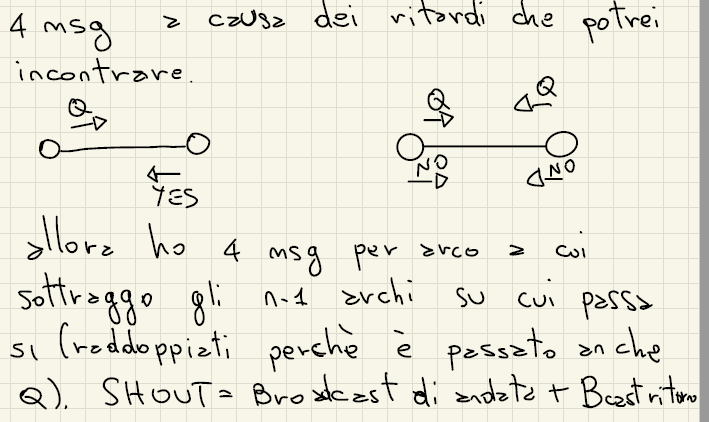 4 msg a causa dei ritardi che potrei
incontrare.
Q Q Q
YES NO NO
allora ho 4 msg per arco a cui
sottraggo gli n-1 archi su cui passa
si (raddoppiati perchè è passato anche
Q). SHOUT = Broadcast di andata + Bcast ritorno